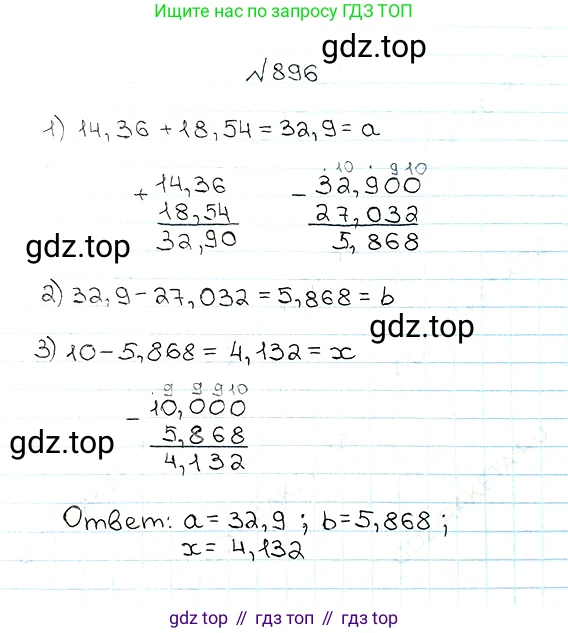 Ищите нас по запросу ГДЗ ТОП
gdz.top
№896
1) 14,36 + 18,54 = 32,9 = a
+ 14,36
18,54
32,90
. 10 . 9 10
- 32,900
27,032
5,868
gdz.top
2) 32,9 - 27,032 = 5,868 = b
gdz.top
3) 10 - 5,868 = 4,132 = x
. 9 9 9 10
- 10,000
5,868
4,132
gdz.top
Ответ: a = 32,9 ; b = 5,868 ;
x = 4,132
gdz top // гдз топ // gdz.top // гдз.топ